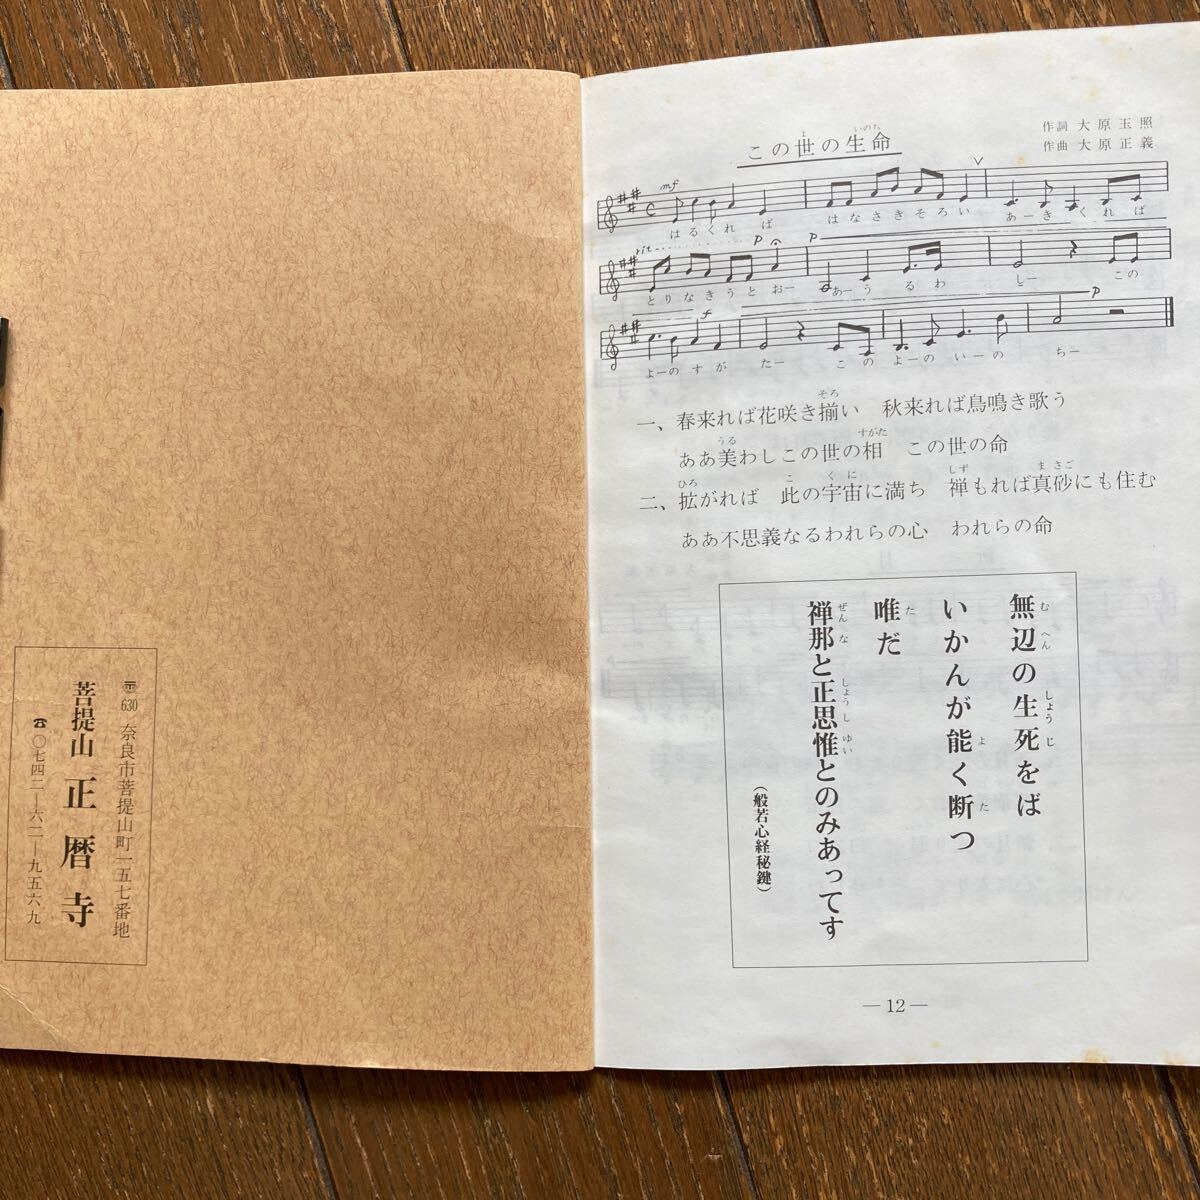 〒630 奈良市菩提山町一五七番地
菩提山 正暦寺
☎〇七四二―六二―九五六九
この世の生命
よ いのち
作詞 大原玉照
作曲 大原正義
mf
はるくれば はなさきそろい あーきくれば
rit p p
とりなきうとおー あーうるわ しー この
f p
よーのすが たー このよーのいーの ちー
そろ
一、春来れば花咲き揃い 秋来れば鳥鳴き歌う
うる すがた
ああ美わしこの世の相 この世の命
ひろ こ くに しず まさご
二、拡がれば 此の宇宙に満ち 禅もれば真砂にも住む
ああ不思義なるわれらの心 われらの命
無辺の生死をば
む へん しょう じ
いかんが能く断つ
よ た
唯だ
た
禅那と正思惟とのみあってす
ぜん な しょう し ゆい
(般若心経秘鍵)
―12―